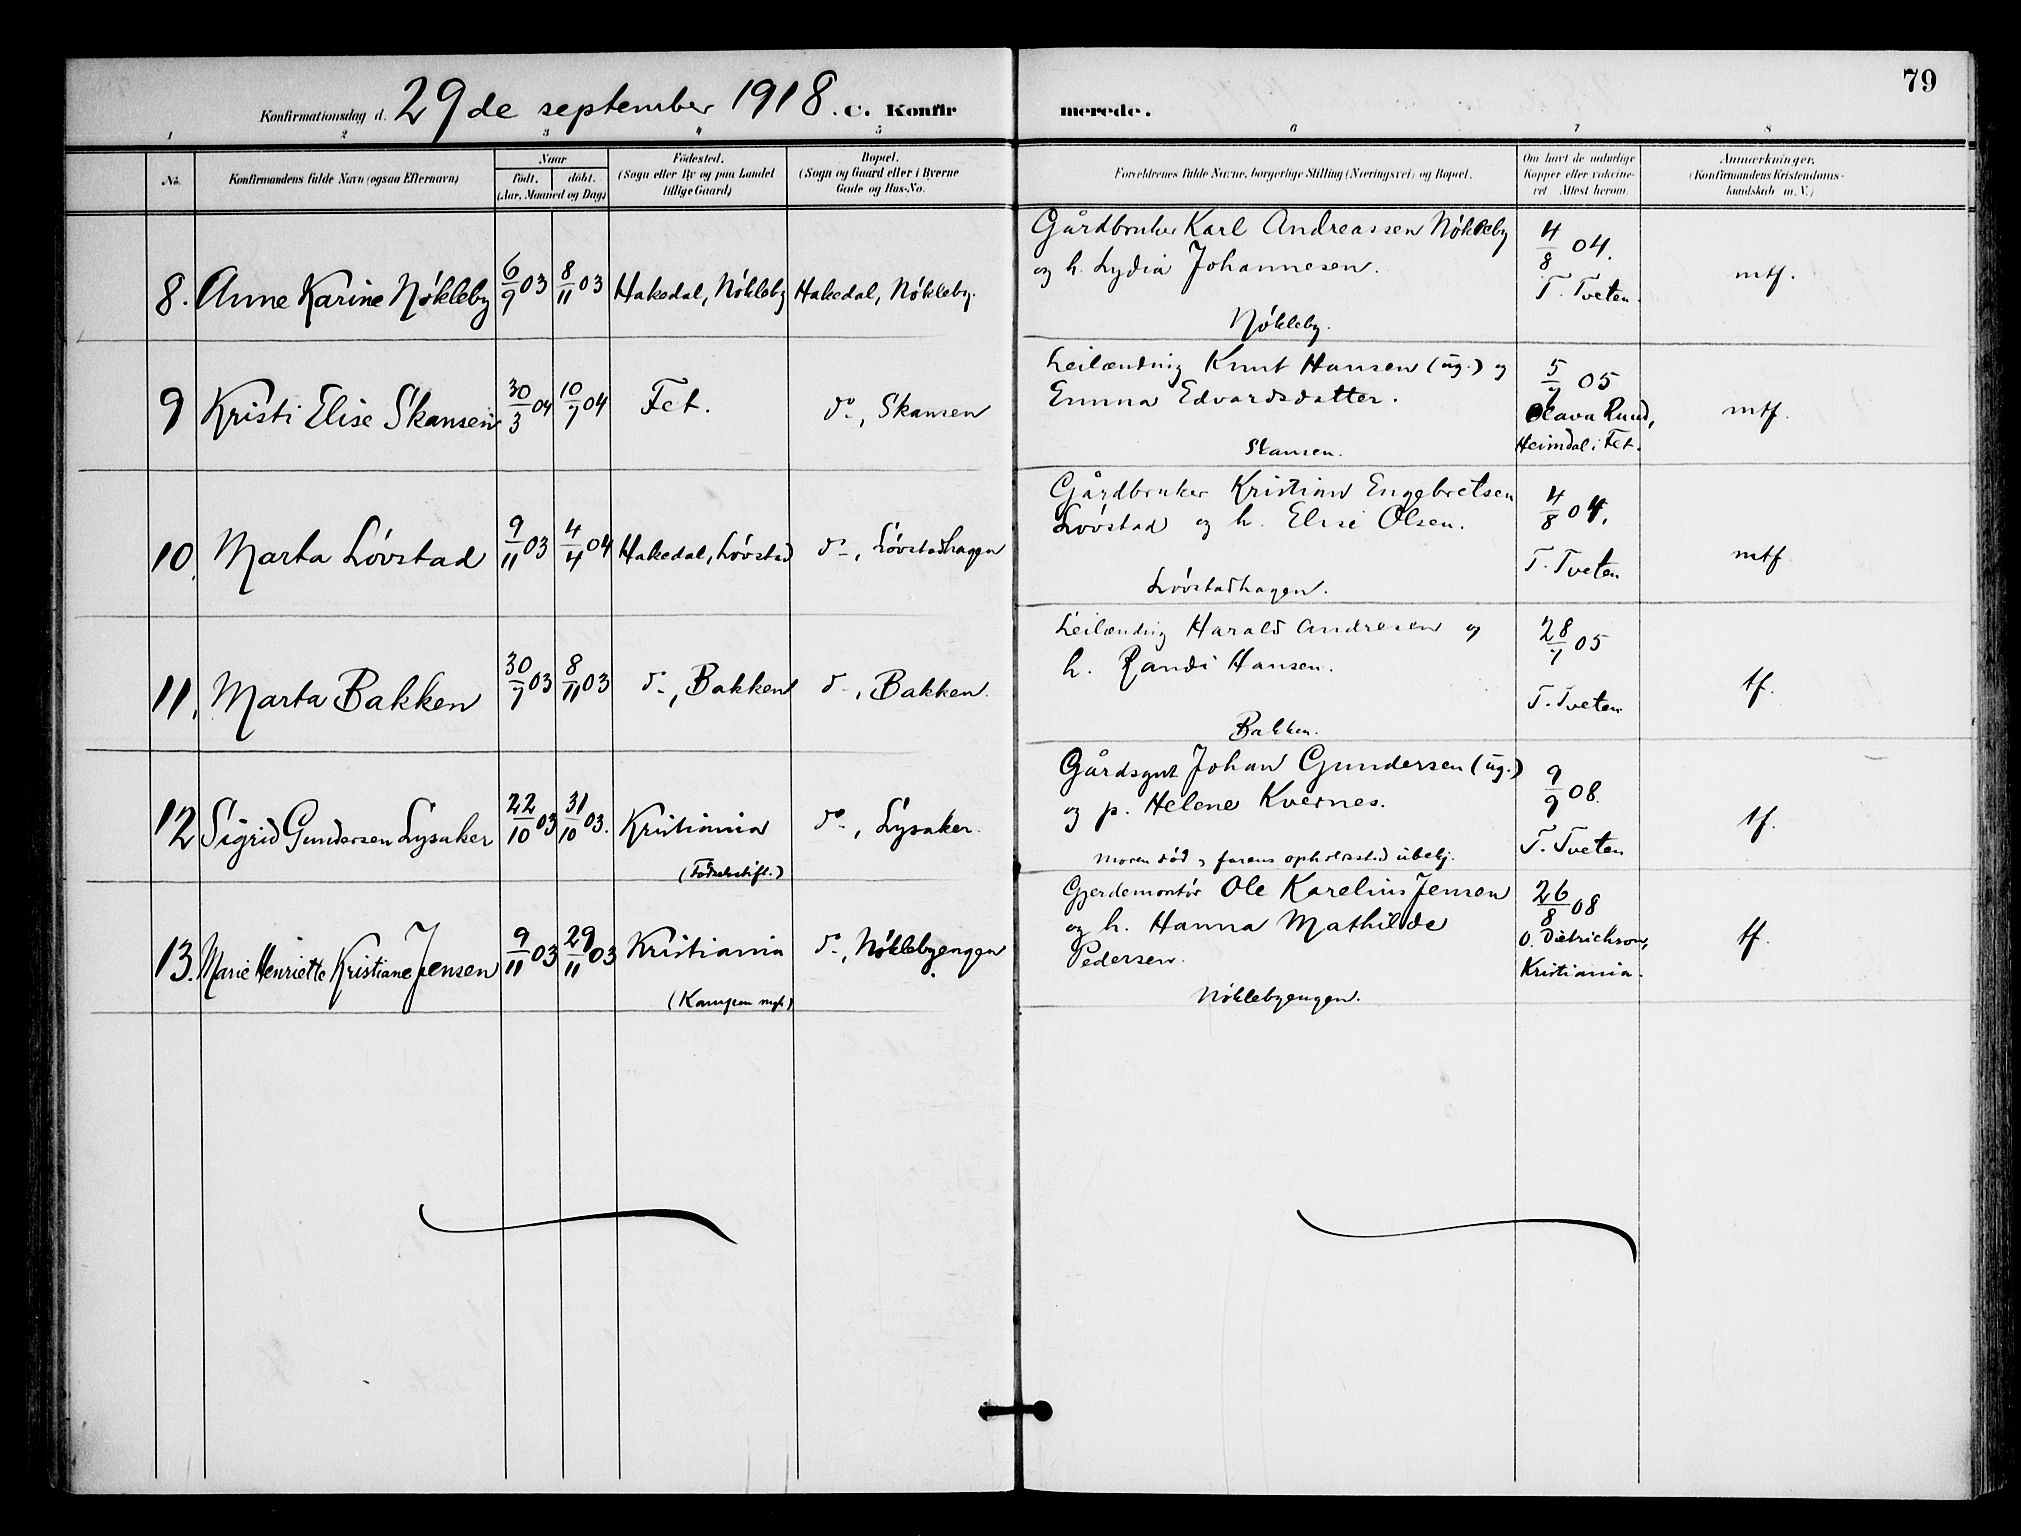 79
Konfirmationsdag d. 29de september 1918. C. Konfir merede.
1 2 3 4 5 6 7 8
No. Konfirmandens fulde Navn (ogsaa Efternavn) Naar Födested. Bopæl. Forældrenes fulde Navne, borgerlige Stilling (Næringsvei) og Bopæl. Om havt de naturlige Anmærkninger.
födt. döbt. (Sogn eller By og paa Landet (Sogn og Gaard eller i Byerne Kopper eller vaccine- (Konfirmandens Kristendoms-
(Aar, Maaned og Dag) tillige Gaard) Gade og Hus-No. ret. Attest herom. kundskab m. V.)
8. Anne Karine Nökleby 6/9 03 8/11 03 Hakedal, Nökleby Hakedal, Nökleby.
Gårdbruker Karl Andreassen Nökleby
og h. Lydia Johannesen.
Nökleby.
4/8 04.
T. Tveten.
mtf.
9 Kristi Elise Skansen 30/3 04 10/7 04 Fet. do, Skansen
Leilænding Knut Hansen (ug.) og
Emma Edvardsdatter.
Skansen.
5/7 05
Olava Ruud,
Heimdal i Fet.
mtf.
10. Marta Lövstad 9/11 03 4/4 04 Hakedal, Lövstad do, Lövstadhagen
Gårdbruker Kristian Engebretsen
Lövstad og h. Elise Olsen.
Lövstadhagen.
4/8 04.
T. Tveten
mtf
11. Marta Bakken 30/7 03 8/11 03 do, Bakken do, Bakken.
Leilænding Harald Andresen og
h. Randi Hansen.
Bakken.
28/7 05
T. Tveten
tf.
12 Sigrid Gundersen Lysaker 22/10 03 31/10 03. Kristiania do, Lysaker.
(Födselsstift.)
Gårdsgut Johan Gundersen (ug.)
og p. Helene Kvernes.
Moren död, farens opholdssted ubekj.
9/9 08.
T. Tveten
tf.
13. Marie Henriette Kristiane Jensen 9/11 03 29/11 03 Kristiania do, Nöklebyengen
(Kampen mgh)
Gjerdemontör Ole Karelius Jensen
og h. Hanna Mathilde
Pedersen.
Nöklebyengen.
26/8 08
O. Dietrichson,
Kristiania.
tf.